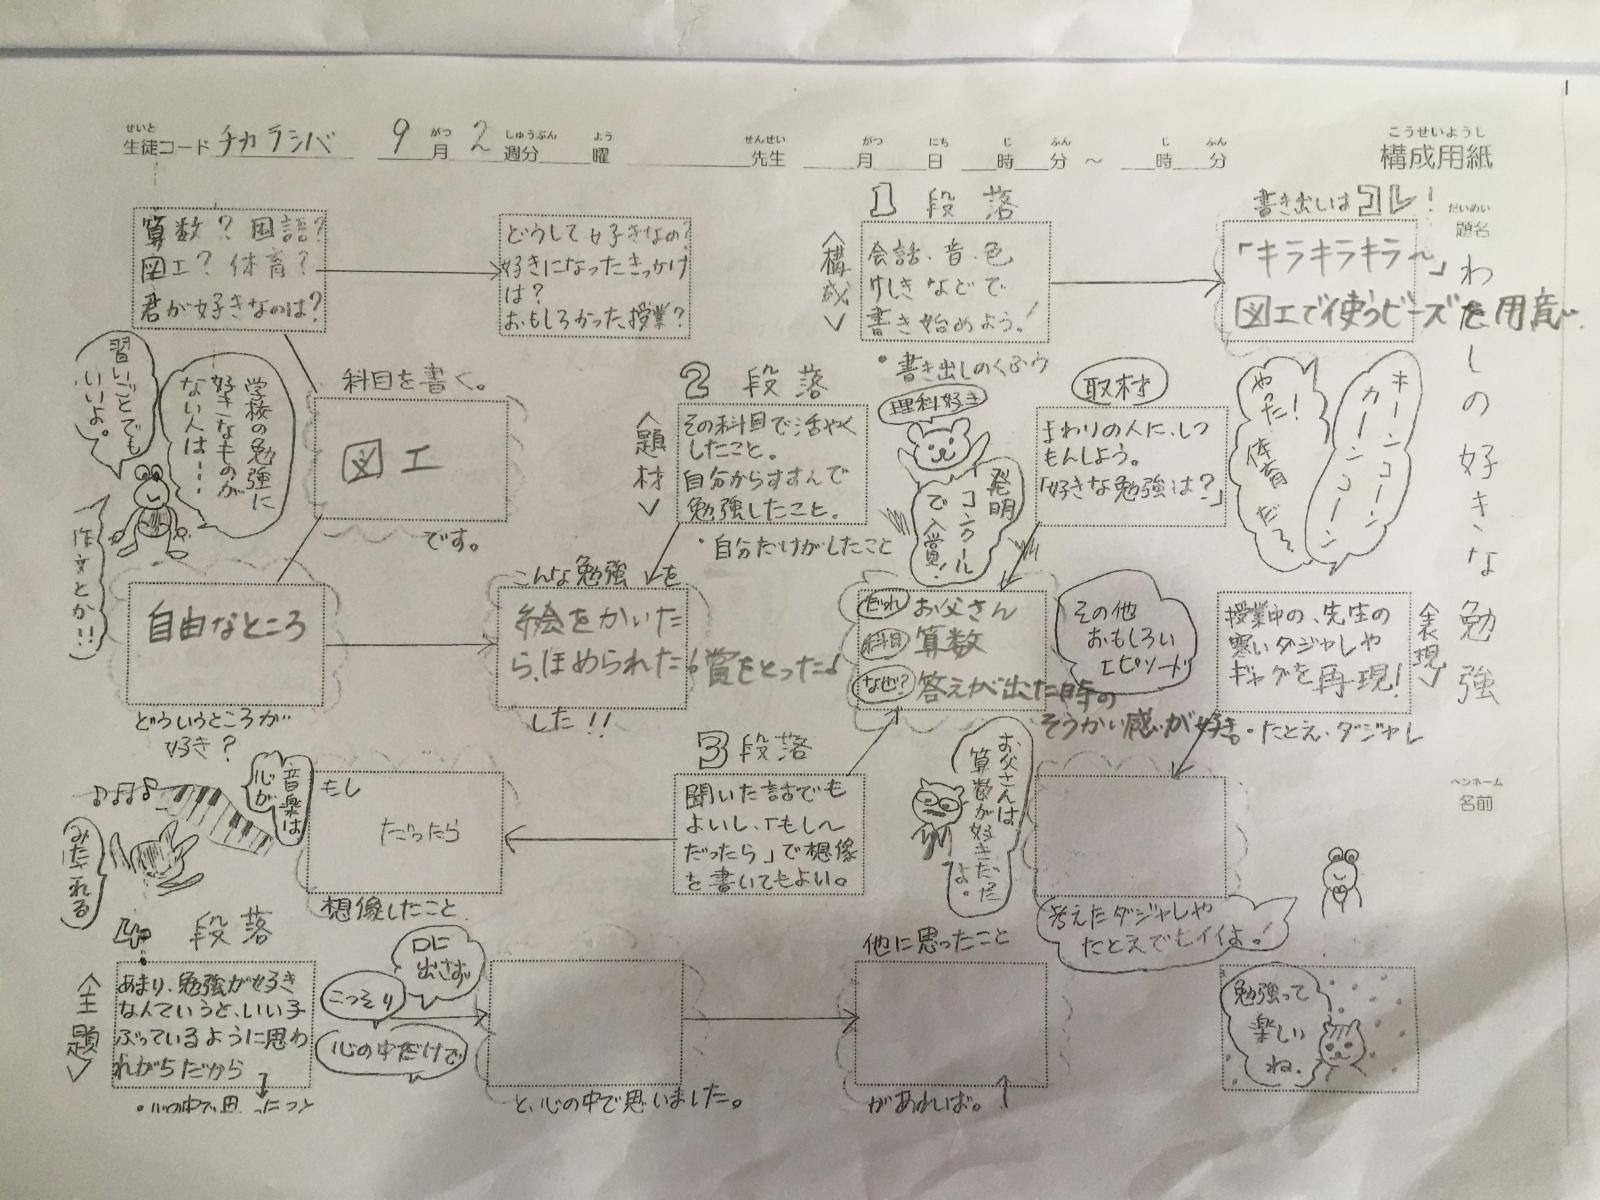 生徒コード チカラシバ 9月 2週分 曜 先生 月 日 時 分 ～ 時 分
せいと がつ しゅうぶん よう せんせい がつ にち じ ふん じ ふん
こうせいようし
構成用紙
だいめい
題名
わたしの好きな勉強
ペンネーム
名前
1段落
書き出しはコレ!
「キラキラキラ〜」
図工で使うビーズを用意
〈構成〉
会話、音、色
けしきなどで
書き始めよう!
・書き出しのくふう
どうして好きなの?
好きになったきっかけ
は?
おもしろかった授業?
算数? 国語?
図工? 体育?
君が好きなのは?
キーンコーン
カーンコーン
やった!
体育だ〜
取材
まわりの人に、しつ
もんしよう。
「好きな勉強は?」
理科好き
発明
コンクール
で入賞!
2段落
〈題材〉
その科目で活やく
したこと。
自分からすすんで
勉強したこと。
・自分だけがしたこと
科目を書く。
図工
です。
学校の勉強に
好きなものが
ない人は・・・
習いごとでも
いいよ。
作文とか!!
自由なところ
どういうところが
好き?
こんな勉強を
絵をかいた
ら、ほめられた!賞をとった!
した!!
だれ お父さん
科目 算数
なぜ? 答えが出た時の
そうかい感が好き。
その他
おもしろい
エピソード
〈表現〉
授業中の、先生の
寒いダジャレや
ギャグを再現!
・たとえ、ダジャレ
お父さんは
算数が好きだった
よ。
考えたダジャレや
たとえでもイイよ!
3段落
聞いた話でも
よいし、「もし〜
だったら」で想像
を書いてもよい。
もし
だったら
想像したこと
音楽は
心が
みだれる
4段落
〈主題〉
あまり、勉強が好き
なんていうと、いい子
ぶっているように思わ
れがちだから
・心の中で思ったこと
口に
出さず
こっそり
心の中だけで
と、心の中で思いました。
他に思ったこと
があれば。
勉強って
楽しい
ね.